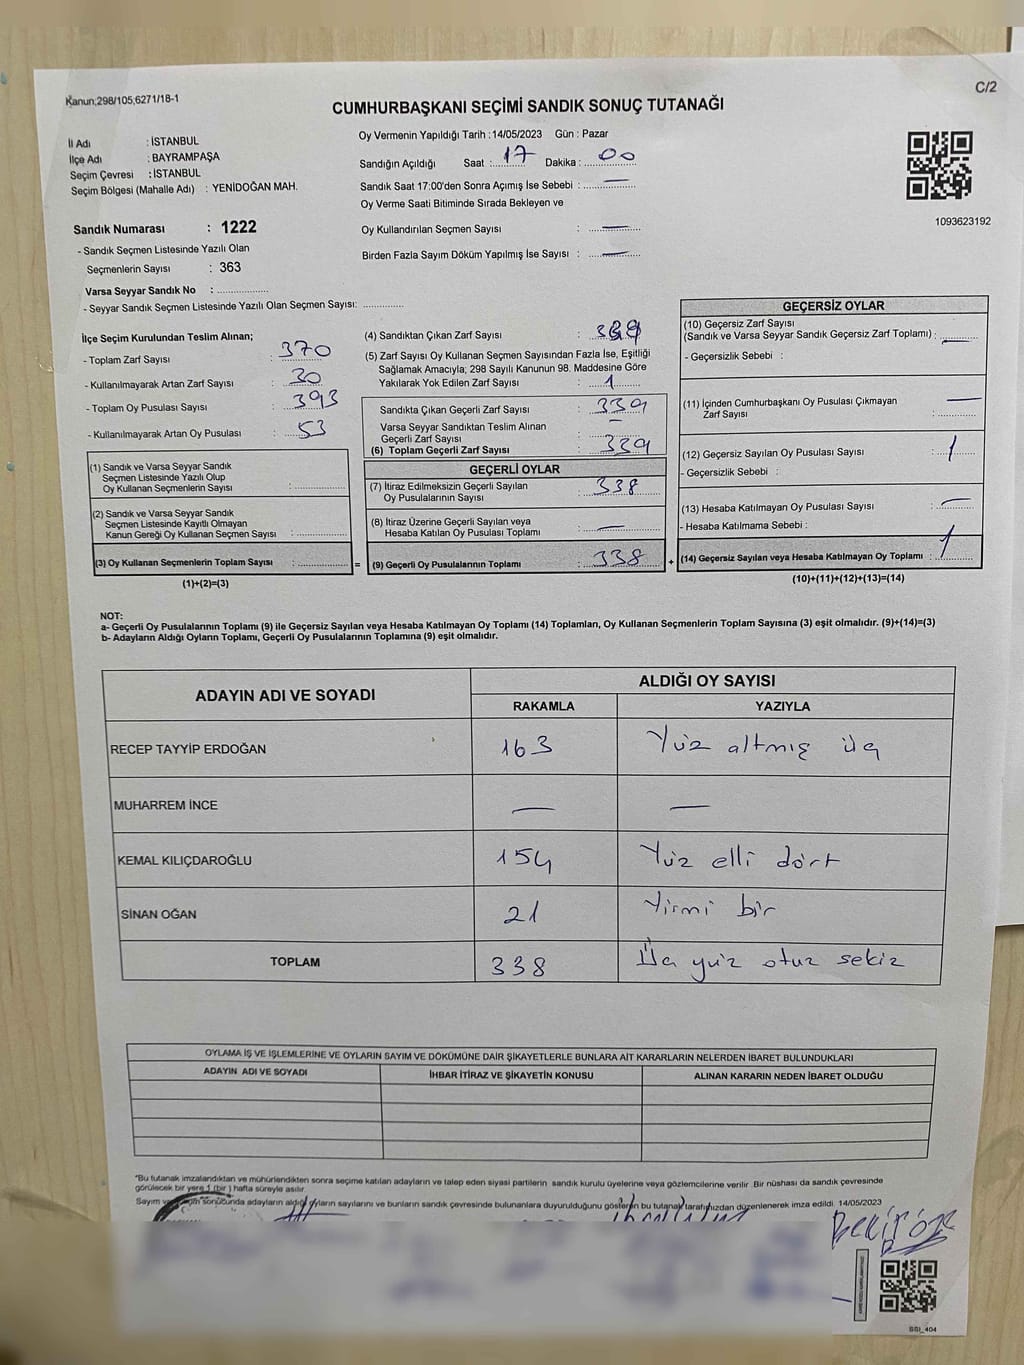 Kanun;298/105,6271/18-1
C/2
CUMHURBAŞKANI SEÇİMİ SANDIK SONUÇ TUTANAĞI
İl Adı : İSTANBUL
İlçe Adı : BAYRAMPAŞA
Seçim Çevresi : İSTANBUL
Seçim Bölgesi (Mahalle Adı) : YENİDOĞAN MAH.
Sandık Numarası : 1222
- Sandık Seçmen Listesinde Yazılı Olan
Seçmenlerin Sayısı : 363
Varsa Seyyar Sandık No : ..................
- Seyyar Sandık Seçmen Listesinde Yazılı Olan Seçmen Sayısı: ..............
Oy Vermenin Yapıldığı Tarih : 14/05/2023 Gün : Pazar
Sandığın Açıldığı Saat : 17 Dakika : 00
Sandık Saat 17:00'den Sonra Açımış İse Sebebi : —
Oy Verme Saati Bitiminde Sırada Bekleyen ve
Oy Kullandırılan Seçmen Sayısı : —
Birden Fazla Sayım Döküm Yapılmış İse Sayısı : —
1093623192
İlçe Seçim Kurulundan Teslim Alınan;
- Toplam Zarf Sayısı : 370
- Kullanılmayarak Artan Zarf Sayısı : 30
- Toplam Oy Pusulası Sayısı : 393
- Kullanılmayarak Artan Oy Pusulası : 53
(1) Sandık ve Varsa Seyyar Sandık
Seçmen Listesinde Yazılı Olup
Oy Kullanan Seçmenlerin Sayısı : ..............
(2) Sandık ve Varsa Seyyar Sandık
Seçmen Listesinde Kayıtlı Olmayan
Kanun Gereği Oy Kullanan Seçmen Sayısı : ..............
(3) Oy Kullanan Seçmenlerin Toplam Sayısı : ..............
(1)+(2)=(3)
=
(4) Sandıktan Çıkan Zarf Sayısı :
(5) Zarf Sayısı Oy Kullanan Seçmen Sayısından Fazla İse, Eşitliği
Sağlamak Amacıyla; 298 Sayılı Kanunun 98. Maddesine Göre
Yakılarak Yok Edilen Zarf Sayısı : 1
Sandıkta Çıkan Geçerli Zarf Sayısı : 339
Varsa Seyyar Sandıktan Teslim Alınan
Geçerli Zarf Sayısı : —
(6) Toplam Geçerli Zarf Sayısı : 339
GEÇERLİ OYLAR
(7) İtiraz Edilmeksizin Geçerli Sayılan
Oy Pusulalarının Sayısı : 338
(8) İtiraz Üzerine Geçerli Sayılan veya
Hesaba Katılan Oy Pusulası Toplamı : —
(9) Geçerli Oy Pusulalarının Toplamı : 338
+
GEÇERSİZ OYLAR
(10) Geçersiz Zarf Sayısı
(Sandık ve Varsa Seyyar Sandık Geçersiz Zarf Toplamı) : —
- Geçersizlik Sebebi :
(11) İçinden Cumhurbaşkanı Oy Pusulası Çıkmayan
Zarf Sayısı : —
(12) Geçersiz Sayılan Oy Pusulası Sayısı : 1
- Geçersizlik Sebebi :
(13) Hesaba Katılmayan Oy Pusulası Sayısı : —
- Hesaba Katılmama Sebebi :
(14) Geçersiz Sayılan veya Hesaba Katılmayan Oy Toplamı : 1
(10)+(11)+(12)+(13)=(14)
NOT:
a- Geçerli Oy Pusulalarının Toplamı (9) ile Geçersiz Sayılan veya Hesaba Katılmayan Oy Toplamı (14) Toplamları, Oy Kullanan Seçmenlerin Toplam Sayısına (3) eşit olmalıdır. (9)+(14)=(3)
b- Adayların Aldığı Oyların Toplamı, Geçerli Oy Pusulalarının Toplamına (9) eşit olmalıdır.
ADAYIN ADI VE SOYADI ALDIĞI OY SAYISI
RAKAMLA YAZIYLA
RECEP TAYYİP ERDOĞAN 163 Yüz altmış üç
MUHARREM İNCE — —
KEMAL KILIÇDAROĞLU 154 Yüz elli dört
SİNAN OĞAN 21 Yirmi bir
TOPLAM 338 Üç yüz otuz sekiz
OYLAMA İŞ VE İŞLEMLERİNE VE OYLARIN SAYIM VE DÖKÜMÜNE DAİR ŞİKAYETLERLE BUNLARA AİT KARARLARIN NELERDEN İBARET BULUNDUKLARI
ADAYIN ADI VE SOYADI İHBAR İTİRAZ VE ŞİKAYETİN KONUSU ALINAN KARARIN NEDEN İBARET OLDUĞU
"Bu tutanak imzalandıktan ve mühürlendikten sonra seçime katılan adayların ve talep eden siyasi partilerin sandık kurulu üyelerine veya gözlemcilerine verilir. Bir nüshası da sandık çevresinde
görülecek bir yere 1 (bir ) hafta süreyle asılır.
Sayım sonucunda adayların aldığı oyların sayılarını ve bunların sandık çevresinde bulunanlara duyurulduğunu gösteren bu tutanak tarafımızdan düzenlenerek imza edildi. 14/05/2023
SSI_404